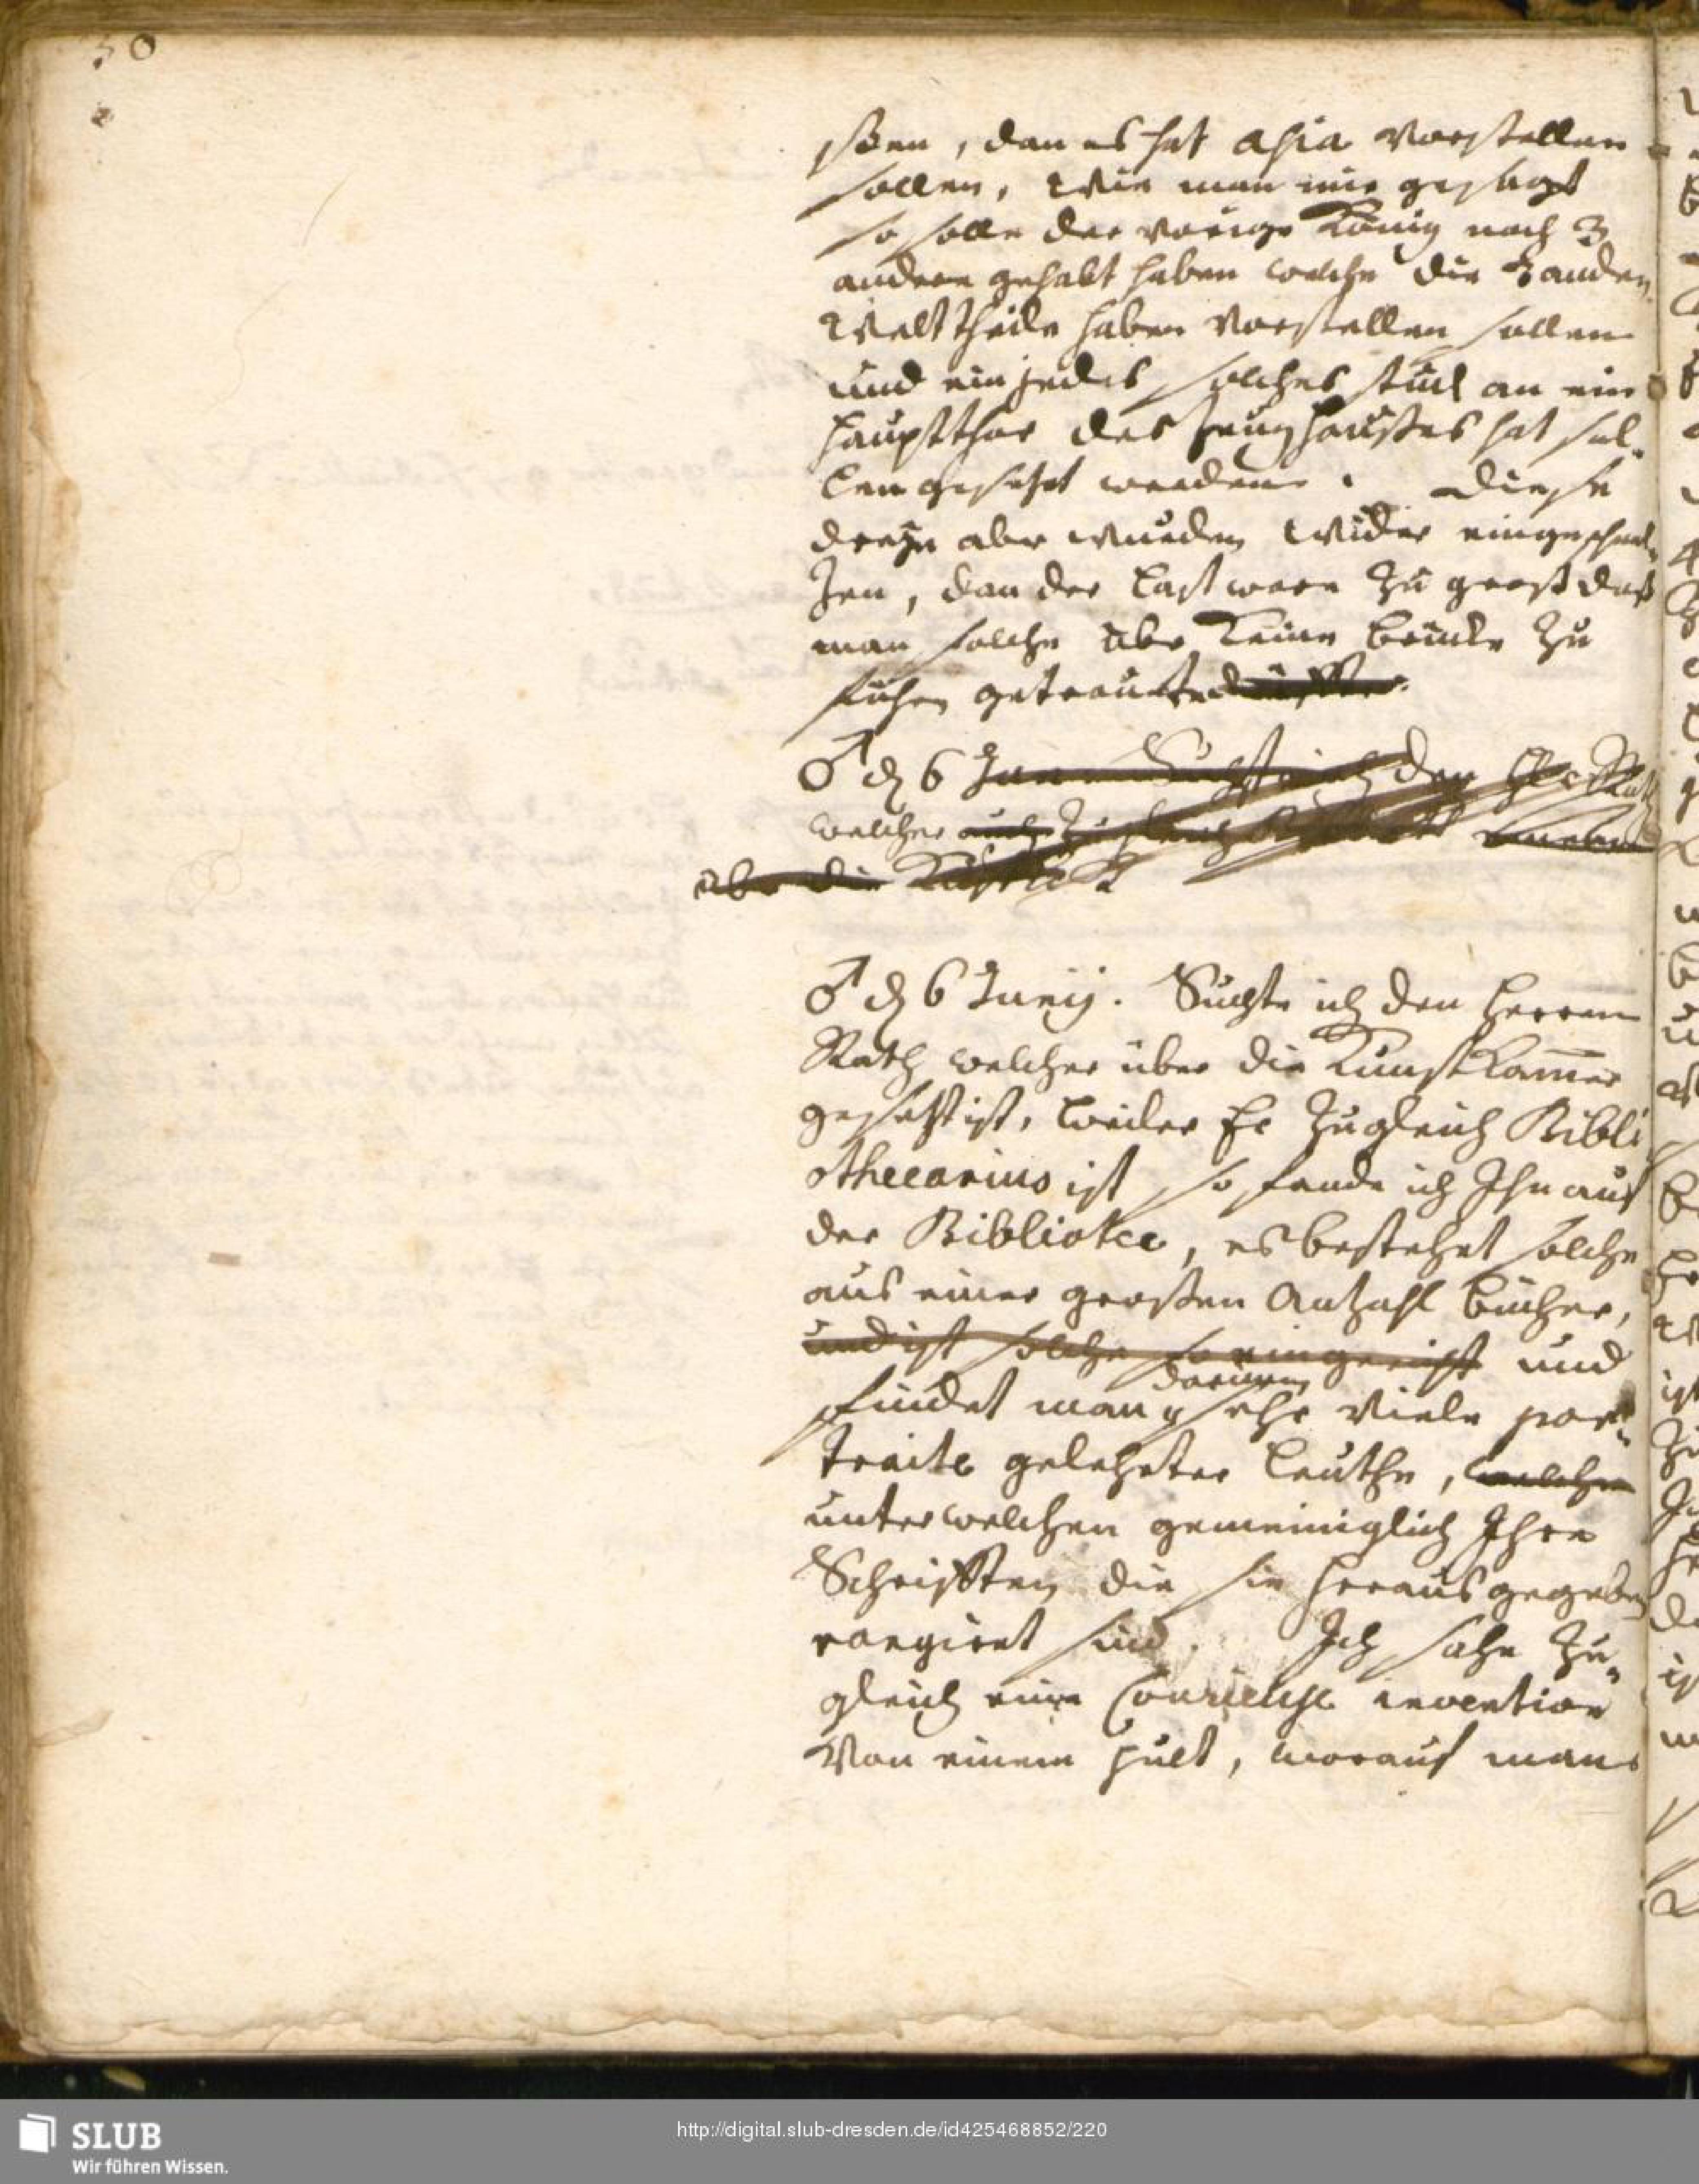 50
ßen, dan es hat Asia Vorstellen
sollen, Wie man mir gesagt
so solle der vorige König noch 3
andere gehabt haben welche die 3 andern
Welttheile haben Vorstellen sollen
und ein jedes solches stück an ein
haupstthor des Zeughaußes hat sol„
len gesetzt werden. Diese
dreÿe aber wurden wider eingeschmel„
zen, dan der Last ware Zu groß daß
man solche über Keine brücke Zu
führen getraute
♂ d 6 Junii Suchte ich den Rath
welcher auch Zugleich
über die
♂ d 6 Junij. Suchte ich den Herren
Rath welcher über die KunstKammer
gesetzt ist, weiler Er Zugleich Bibli
othecarius ist so fande ich Ihn auf
der Bibliotec, es bestehet solche
aus einer großen Anzahl bücher,
und ist solche so eingericht und
darinen
findet man sehr Viele por„
traite gelehrter Leuthe, welche
unter welchen gemeiniglich Ihre
Schrifften die sie heraus gegeben
rangiret sind. Ich sahe Zu„
gleich eine Courieuse invention
Von einem pult, worauf man
SLUB
Wir führen Wissen.
http://digital.slub-dresden.de/id425468852/220